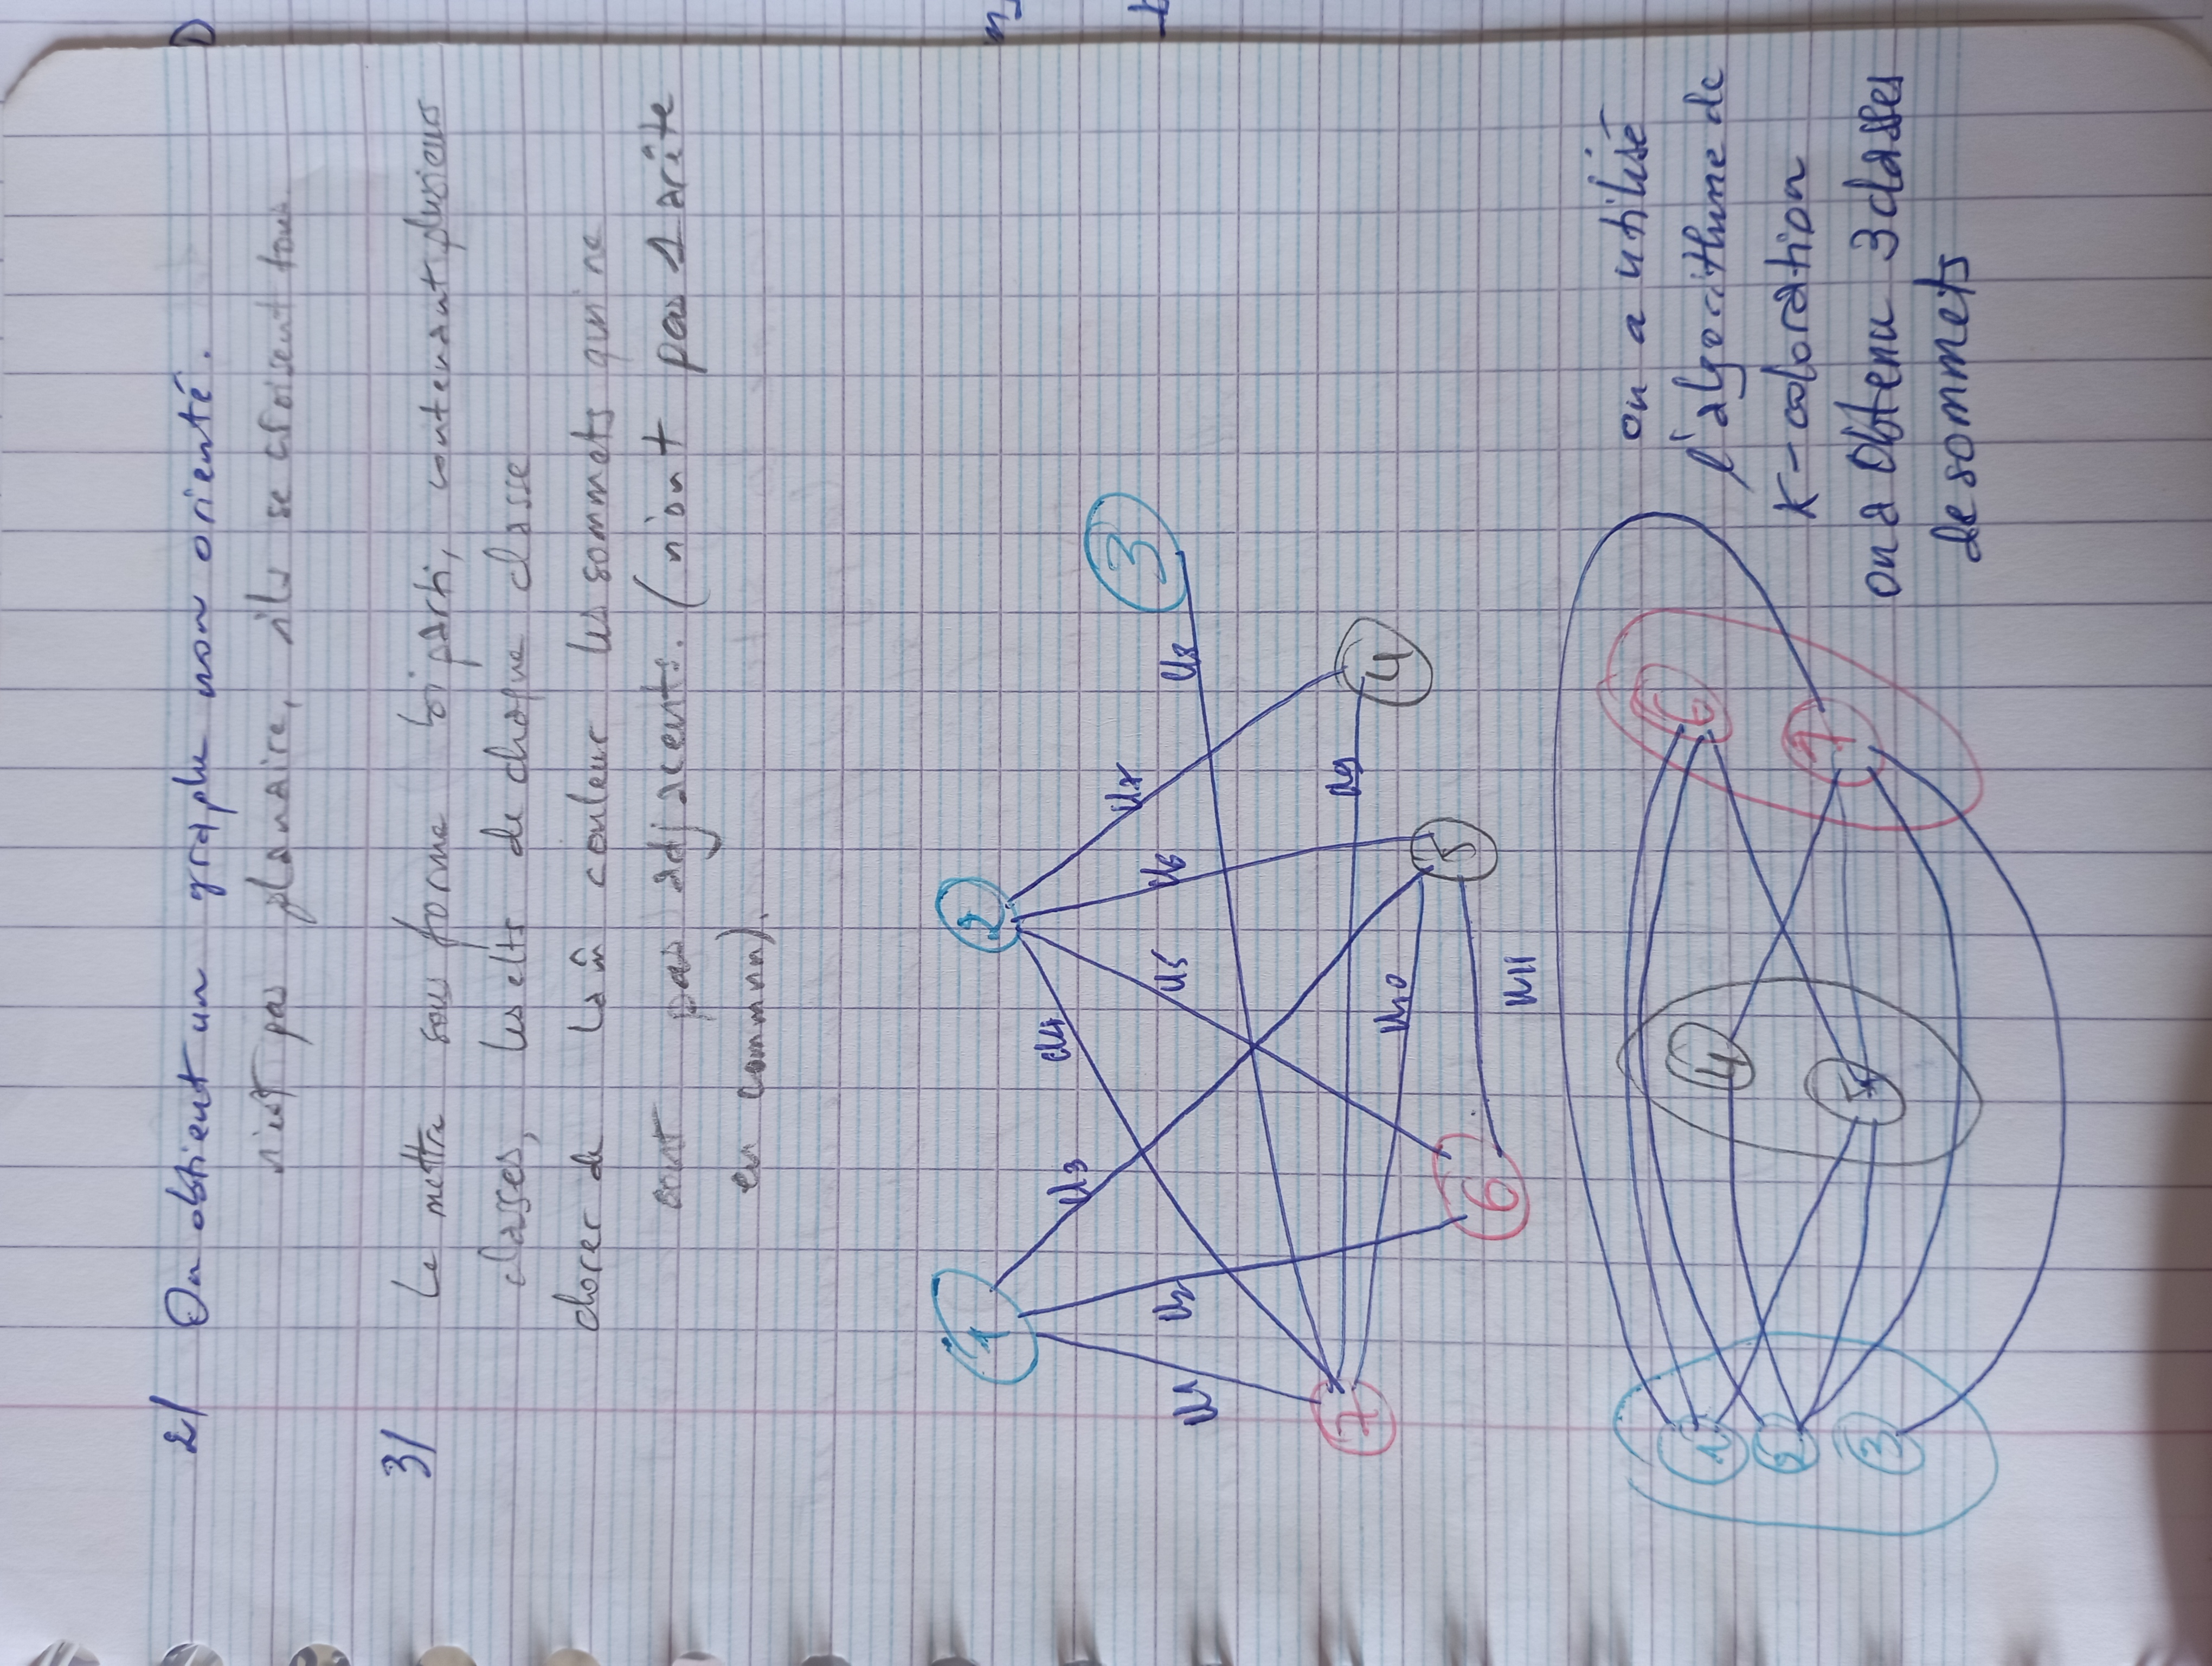 2/ On obtient un graphe non orienté.
n'est pas planaire, ils se croisent tous.
3/ Le mettre sous forme biparti, contenant plusieurs
classes, les elts de chaque classe
clorer de la m̂ couleur les sommets qui ne
sont pas adjacents. (n'ont pas 1 arête
en commun).
1 2
u3 u4
3
u7
u1 u2 u5 u6 u8
7 u9
4
u10
6 5
u11
on a utilisé
1 4 6 l'algorithme de
2 K-coloration
3 5 7 on a obtenu 3 classes
de sommets